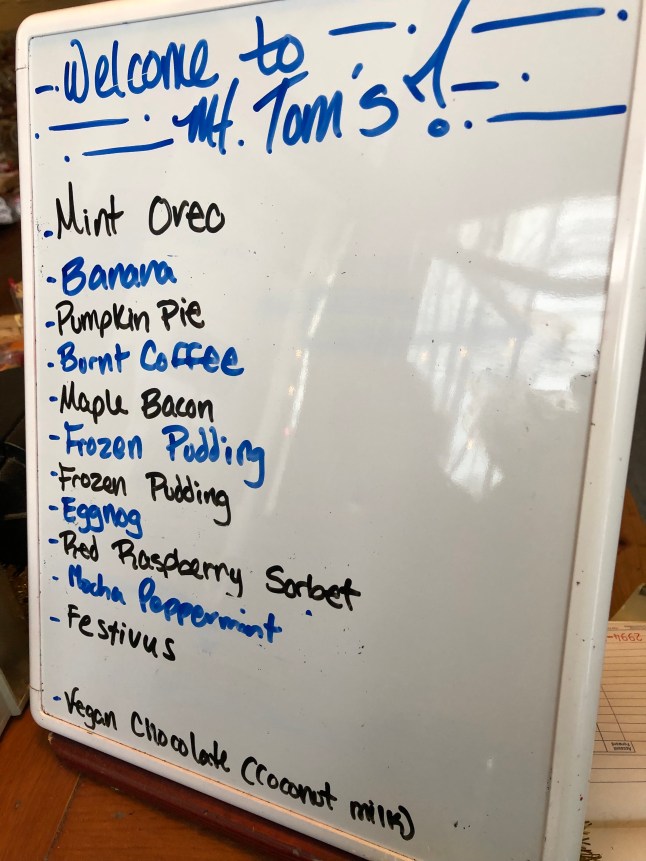 Welcome to
Mt. Tom's!
- Mint Oreo
- Banana
- Pumpkin Pie
- Burnt Coffee
- Maple Bacon
- Frozen Pudding
- Frozen Pudding
- Eggnog
- Red Raspberry Sorbet
- Mocha Peppermint
- Festivus
- Vegan Chocolate (coconut milk)
2994-